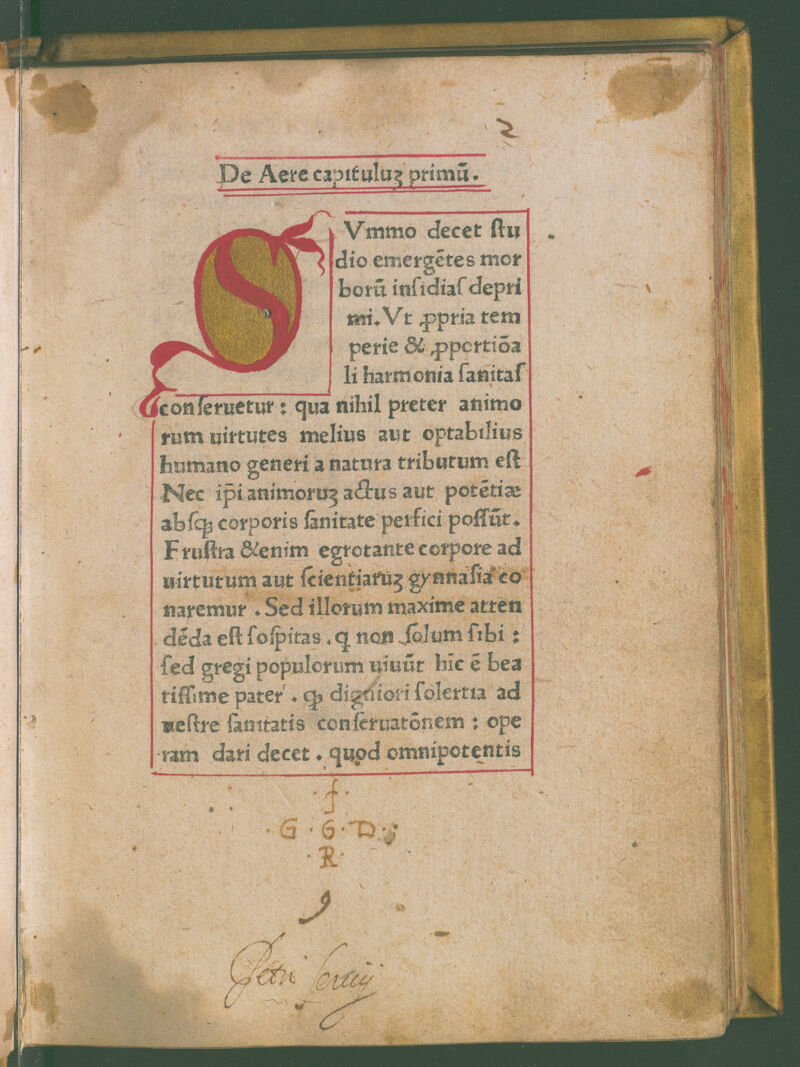 2
De Aere capituluꝫ primū.
SVmmo decet ſtu
dio emergētes mor
borū inſidiaſ depri
mi. Vt ꝓpria tem
perie & ꝓportiōa
li harmonia ſanitaſ
conſeruetur : qua nihil preter animo
rum uirtutes melius aut optabilius
humano generi a natura tributum eſt
Nec ip̄i animoruꝫ actus aut potētiæ
abſqꝫ corporis ſanitate perfici poſſūt.
Fruſtra &enim egrotante corpore ad
uirtutum aut ſcientiaruꝫ gymnaſia co
naremur . Sed illorum maxime atten
dēda eſt ſoſpitas . q non ſolum ſibi :
ſed gregi populorum uiuūt hic ē bea
tiſſime pater . ꝙ digniori ſolertia ad
ueſtre ſanitatis conſeruatōnem : ope
ram dari decet . quod omnipotentis
· f ·
· G · G · D ·
· R ·
9
Petri